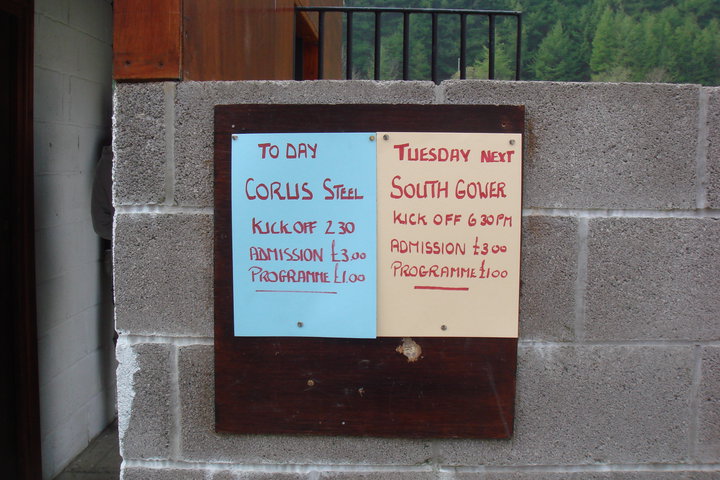 TO DAY
CORUS STEEL
KICK OFF 2 30
ADMISSION £3.00
PROGRAMME £1.00
TUESDAY NEXT
SOUTH GOWER
KICK OFF 6 30PM
ADMISSION £3.00
PROGRAMME £1.00